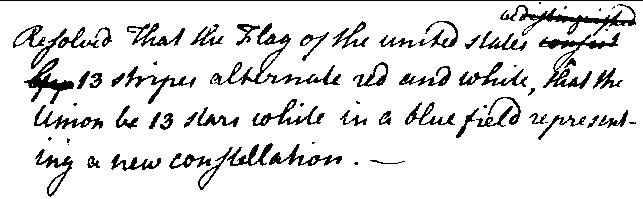 be distinguished
Resolved That the Flag of the united states consist
13 stripes alternate red and white, that the
Union be 13 stars white in a blue field represent-
ing a new constellation. —